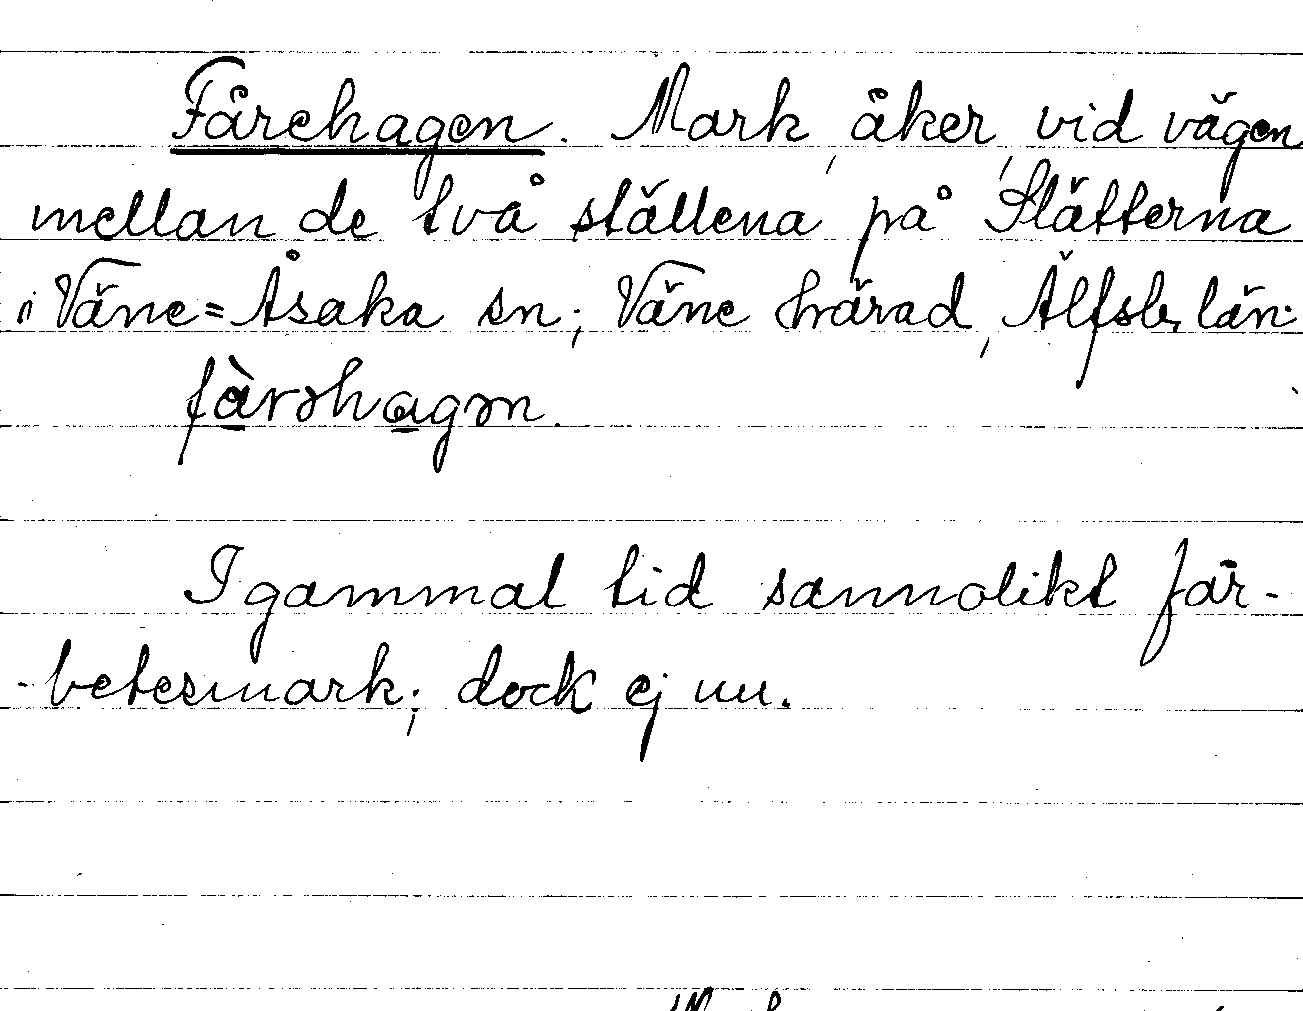 Fårehagen. Mark, åker, vid vägen
mellan de två ställena på Slätterna
i Väne=Åsaka sn; Väne härad, Älfsb. län.
fàrəhagən.
I gammal tid sannolikt får-
-betesmark; dock ej nu.